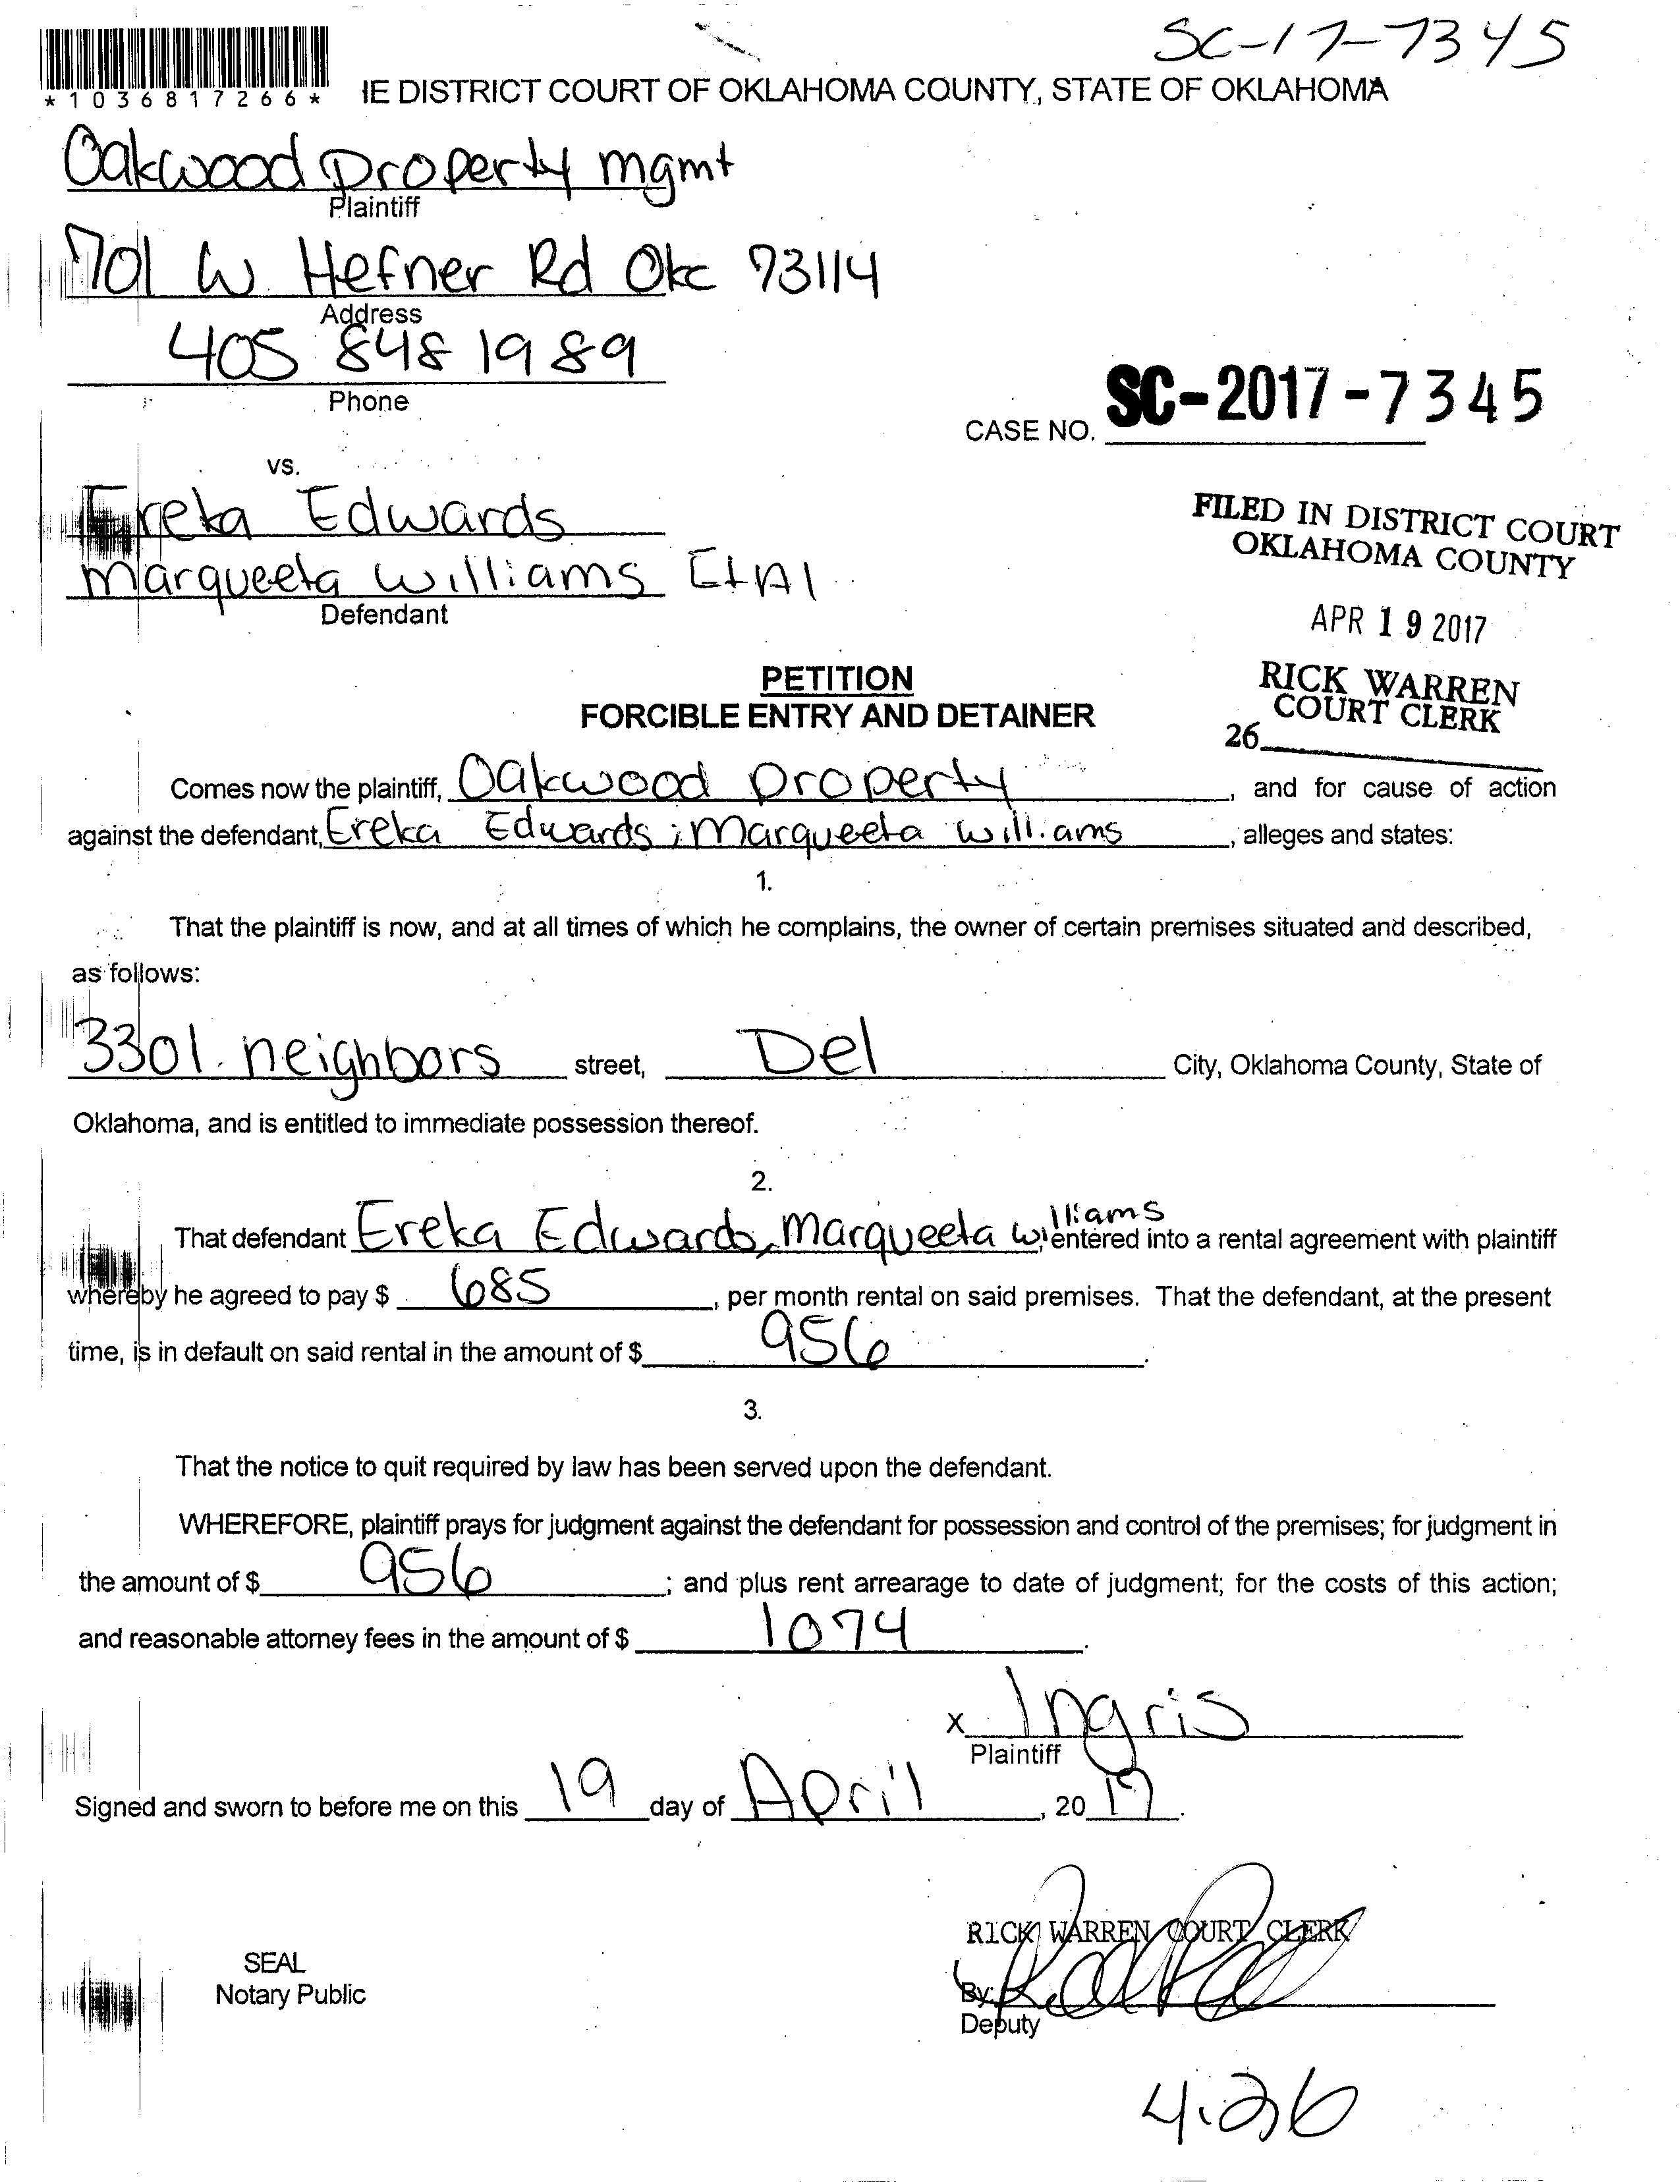 SC-17-7345
*1036817266*
IE DISTRICT COURT OF OKLAHOMA COUNTY, STATE OF OKLAHOMA
Oakwood Property mgmt
Plaintiff
701 W Hefner Rd Okc 73114
Address
405 848 1989
Phone
CASE NO. SC-2017-7345
vs.
Ereka Edwards
Marqueeta Williams Et Al
Defendant
FILED IN DISTRICT COURT
OKLAHOMA COUNTY
APR 19 2017
RICK WARREN
COURT CLERK
26
PETITION
FORCIBLE ENTRY AND DETAINER
Comes now the plaintiff, Oakwood Property, and for cause of action
against the defendant, Ereka Edwards; Marqueeta Williams, alleges and states:
1.
That the plaintiff is now, and at all times of which he complains, the owner of certain premises situated and described,
as follows:
3301 neighbors street, Del City, Oklahoma County, State of
Oklahoma, and is entitled to immediate possession thereof.
2.
That defendant Ereka Edwards, Marqueeta Williams entered into a rental agreement with plaintiff
whereby he agreed to pay $ 685, per month rental on said premises. That the defendant, at the present
time, is in default on said rental in the amount of $ 956.
3.
That the notice to quit required by law has been served upon the defendant.
WHEREFORE, plaintiff prays for judgment against the defendant for possession and control of the premises; for judgment in
the amount of $ 956; and plus rent arrearage to date of judgment; for the costs of this action;
and reasonable attorney fees in the amount of $ 1074.
x Ingris
Plaintiff
Signed and sworn to before me on this 19 day of April, 2017.
RICK WARREN COURT CLERK
SEAL
Notary Public
By:
Deputy
4.26